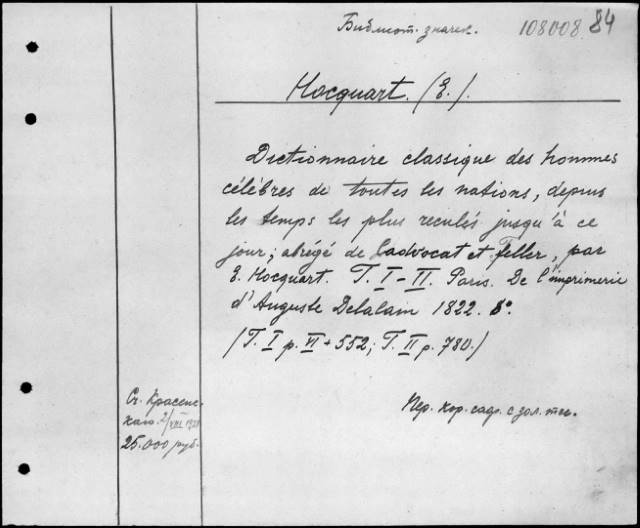 Библиот. значек. 108008 84
Hocquart. (E.).
Dictionnaire classique des hommes
célèbres de toutes les nations, depuis
les temps les plus reculés jusqu'à ce
jour; abrégé de Ladvocat et Feller, par
E. Hocquart. T. I–II. Paris. De l'imprimerie
d'Auguste Delalain 1822. 8°.
(T. I p. VI + 552; T. II p. 780.)
Сч. Красенс-
каго. 2/VIII
25.000 руб.
Пер. кор. сафр. с зол. тис.